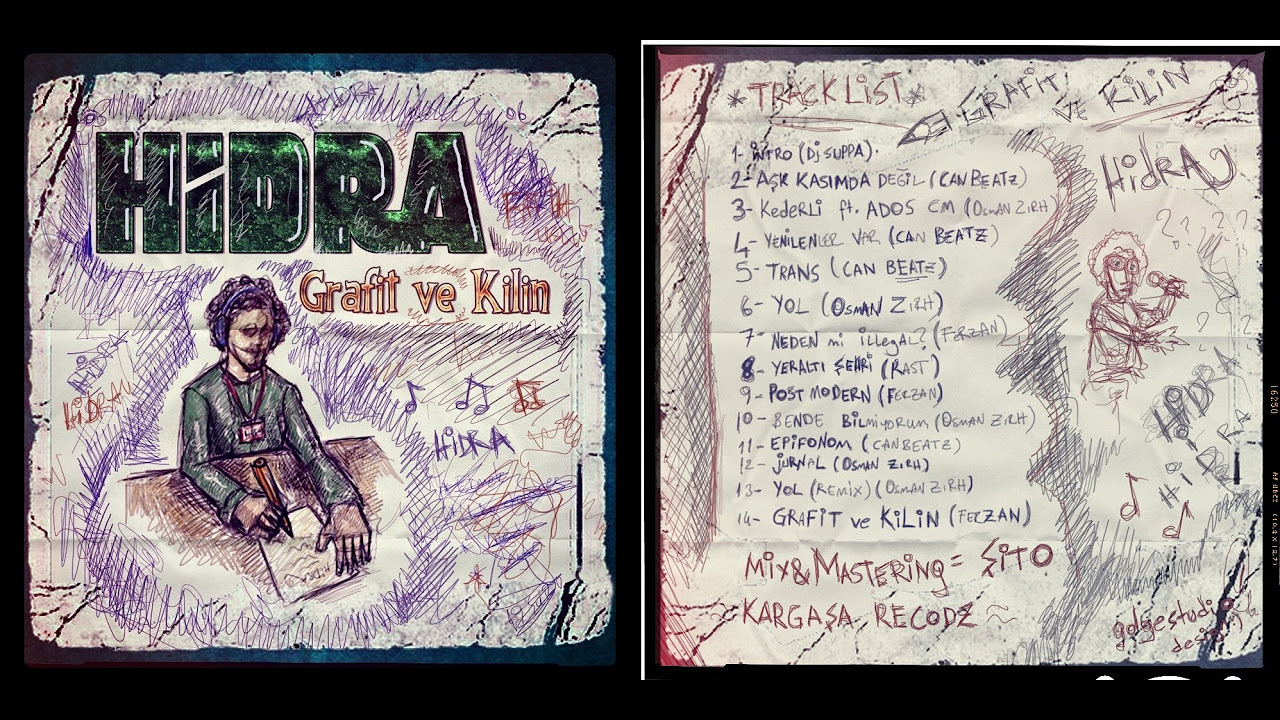 HİDRA
06
HİDRA
Grafit ve Kilin
HİDRA
HİDRA
HİDRA
* TRACK LİST *
GRAFİT VE KİLİN
1- iNTRO (DJ SUPPA).
HidRA
2- AŞK KASIMDA DEĞİL (CAN BEATZ)
3- KedeRLi ft. ADOS CM (OSMAN ZIRH)
4- YENİLENLER VAR (CAN BEATZ)
? ? ? ?
5- TRANS (CAN BEATZ)
6- YOL (OSMAN ZIRH)
7- NEDEN mi illegal? (FERZAN)
8- YERALTI ŞEHRİ (RAST)
9- POST MODERN (FERZAN)
HİDRA
10- BENDE BiLMiYORUM (OSMAN ZIRH)
11- EPİFONOM (CANBEATZ)
HİDRA
12- JURNAL (OSMAN ZIRH)
13- YOL (REMiX) (OSMAN ZIRH)
14- GRAFİT ve KİLİN (FERZAN)
MİX&MASTERİNG = ŞİTO
~ KARGAŞA RECODZ ~
golgestudio
design